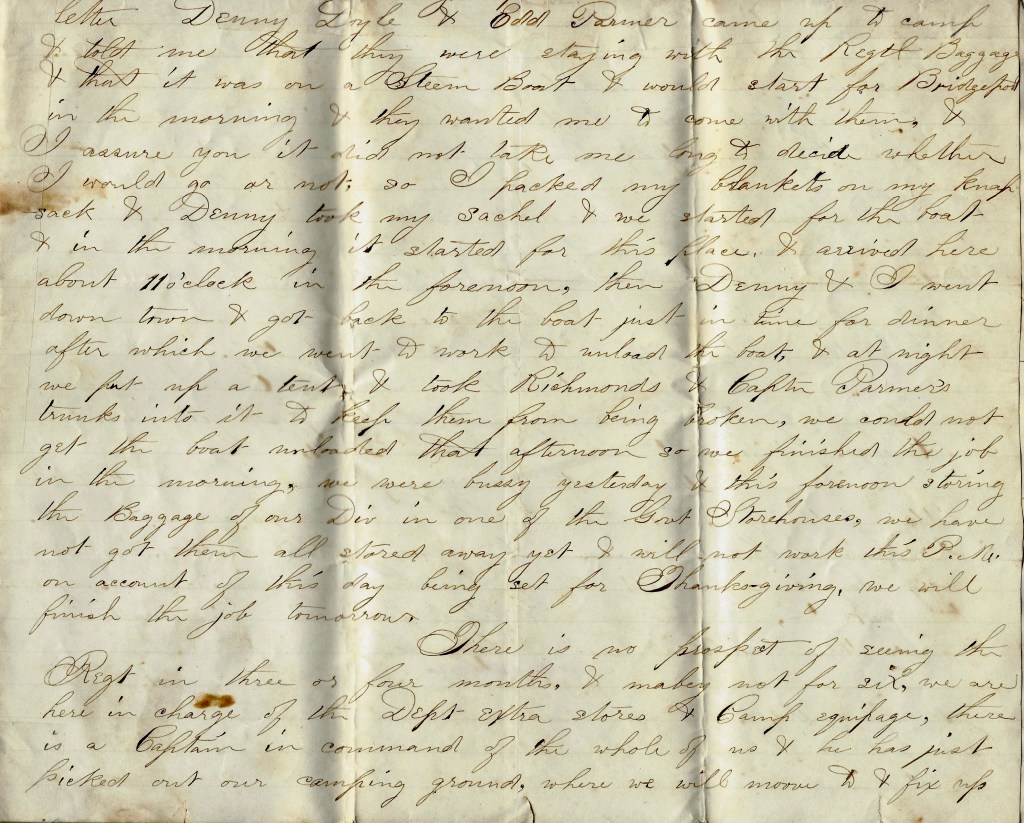 letter Denny Doyle & Edd Parmer came up to camp
& told me that they were staying with the Regtl Baggage
& that it was on a Steem Boat & would start for Bridgeport
in the morning & they wanted me to come with them, &
I assure you it did not take me long to decide whether
I would go or not; so I packed my blankets on my knap
sack & Denny took my sachel & we started for the boat
& in the morning it started for this place. & arrived here
about 11 o'clock in the forenoon, then Denny & I went
down town & got back to the boat just in time for dinner
after which we went to work to unload the boat, & at night
we put up a tent, & took Richmonds & Captn Parmers
trunks into it to keep them from being broken, we could not
get the boat unloaded that afternoon so we finished the job
in the morning, we were bussy yesterday & this forenoon storing
the Baggage of our Div in one of the Govt Storehouses, we have
not got them all stored away yet & will not work this P.M.
on account of this day being set for Thanks-giving, we will
finish the job tomorrow.
There is no prospect of seeing the
Regt in three or four months, & mabey not for six, we are
here in charge of the Dept extra stores & Camp equipage, there
is a Captain in command of the whole of us & he has just
picked out our camping ground, where we will moove to & fix up